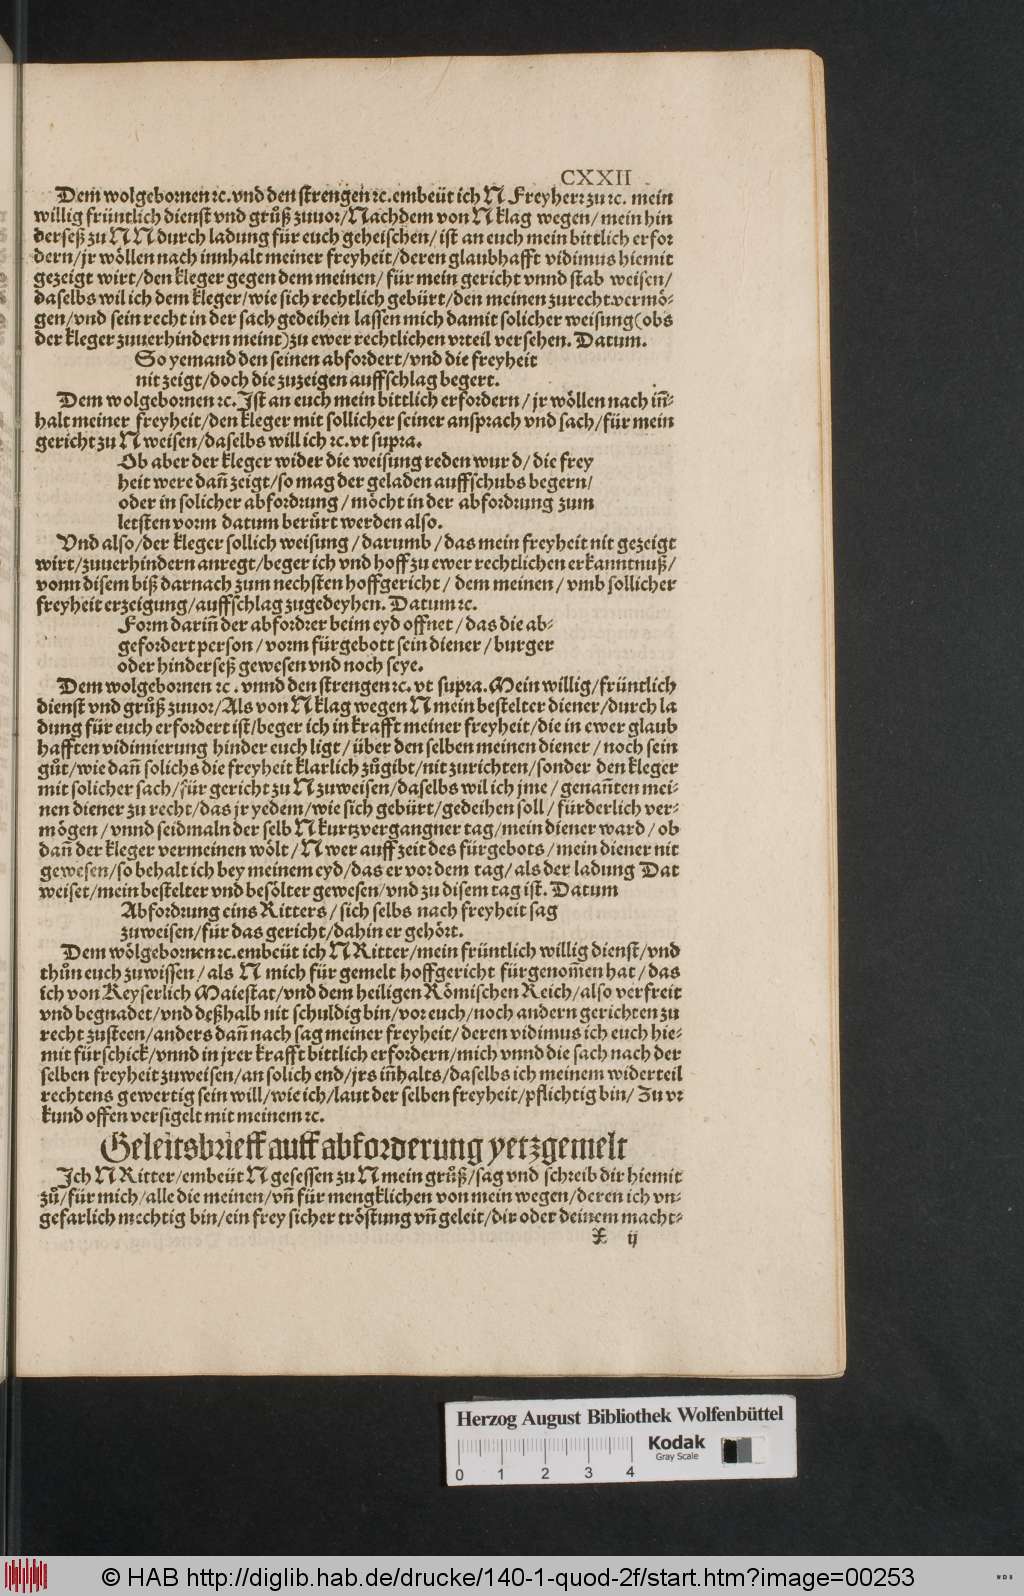 CXXII
Dem wolgebornen ꝛc. vnd den strengen ꝛc. embeüt ich N Freyherr zu ꝛc. mein
willig früntlich dienst vnd grůß zuuor/Nachdem von N klag wegen/ mein hin
derseß zu N N durch ladung für euch geheischen/ ist an euch mein bittlich erfor
dern/ jr wöllen nach innhalt meiner freyheit/ deren glaubhafft vidimus hiemit
gezeigt wirt/ den kleger gegen dem meinen/ für mein gericht vnnd stab weisen/
daselbs wil ich dem kleger/ wie sich rechtlich gebürt/ den meinen zurecht vermö-
gen/ vnd sein recht in der sach gedeihen lassen mich damit solicher weisung (obs
der kleger zuuerhindern meint) zu ewer rechtlichen vrteil versehen. Datum.
So yemand den seinen abfordert/ vnd die freyheit
nit zeigt/ doch die zuzeigen auffschlag begert.
Dem wolgebornen ꝛc. Jst an euch mein bittlich erfordern/ jr wöllen nach iñ-
halt meiner freyheit/ den kleger mit sollicher seiner ansprach vnd sach/ für mein
gericht zu N weisen/ daselbs will ich ꝛc. vt supra.
Ob aber der kleger wider die weisung reden wurd/ die frey
heit were dañ zeigt/ so mag der geladen auffschubs begern/
oder in solicher abfordrung/ möcht in der abfordrung zum
letsten vorm datum berürt werden also.
Vnd also/ der kleger sollich weisung/ darumb/ das mein freyheit nit gezeigt
wirt/ zuuerhindern anregt/ beger ich vnd hoff zu ewer rechtlichen erkanntnuß/
vonn disem biß darnach zum nechsten hoffgericht/ dem meinen/ vmb sollicher
freyheit erzeigung/ auffschlag zugedeyhen. Datum ꝛc.
Form dariñ der abfordrer beim eyd offnet/ das die ab-
gefordert person/ vorm fürgebott sein diener/ burger
oder hinderseß gewesen vnd noch seye.
Dem wolgebornen ꝛc. vnnd den strengen ꝛc. vt supra. Mein willig/ früntlich
dienst vnd grůß zuuor/ Als von N klag wegen N mein bestelter diener/ durch la
dung für euch erfordert ist/ beger ich in krafft meiner freyheit/ die in ewer glaub
hafften vidimierung hinder euch ligt/ über den selben meinen diener/ noch sein
gůt/ wie dañ solichs die freyheit klarlich zůgibt/ nit zurichten/ sonder den kleger
mit solicher sach/ für gericht zu N zuweisen/ daselbs wil ich jme/ genañten mei-
nen diener zu recht/ das jr yedem/ wie sich gebürt/ gedeihen soll/ fürderlich ver-
mögen/ vnnd seidmaln der selb N kurtzvergangner tag/ mein diener ward/ ob
dañ der kleger vermeinen wölt/ N wer auff zeit des fürgebots/ mein diener nit
gewesen/ so behalt ich bey meinem eyd/ das er vor dem tag/ als der ladung Dat
weiset/ mein bestelter vnd besölter gewesen/ vnd zu disem tag ist. Datum
Abfordrung eins Ritters/ sich selbs nach freyheit sag
zuweisen/ für das gericht/ dahin er gehört.
Dem wölgebornen ꝛc. embeüt ich N Ritter/ mein früntlich willig dienst/ vnd
thůn euch zuwissen/ als N mich für gemelt hoffgericht fürgenom̃en hat/ das
ich von Keyserlich Maiestat/ vnd dem heiligen Römischen Reich/ also verfreit
vnd begnadet/ vnd deßhalb nit schuldig bin/ vor euch/ noch andern gerichten zu
recht zusteen/ anders dañ nach sag meiner freyheit/ deren vidimus ich euch hie-
mit fürschick/ vnnd in jrer krafft bittlich erfordern/ mich vnnd die sach nach der
selben freyheit zuweisen/ an solich end/ jrs iñhalts/ daselbs ich meinem widerteil
rechtens gewertig sein will/ wie ich/ laut der selben freyheit/ pflichtig bin/ Zu vr
kund offen versigelt mit meinem ꝛc.
Geleitsbrieff auff abforderung yetzgemelt
Jch N Ritter/ embeüt N gesessen zu N mein grůß/ sag vnd schreib dir hiemit
zů/ für mich/ alle die meinen/ vñ für mengklichen von mein wegen/ deren ich vn-
gefarlich mechtig bin/ ein frey sicher tröstung vñ geleit/ dir oder deinem macht-
X ij
Herzog August Bibliothek Wolfenbüttel
Kodak
Gray Scale
0 1 2 3 4
© HAB http://diglib.hab.de/drucke/140-1-quod-2f/start.htm?image=00253